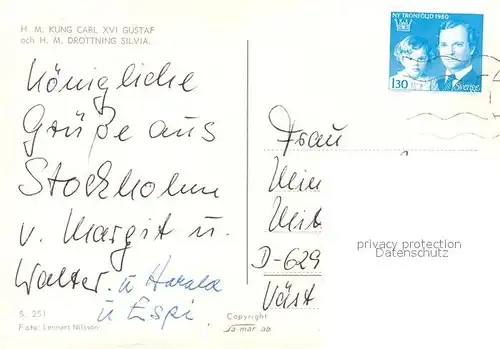 H. M. KUNG CARL XVI GUSTAF
och H. M. DROTTNING SILVIA.
NY TRONFÖLJD 1980
1.30
Sverige
Königliche
Grüße aus
Stockholm
v. Margit u.
Walter. u Harald
u Espi.
Frau
D-629
Väst
privacy protection
Datenschutz
S. 251
Foto: Lennart Nilsson
Copyright